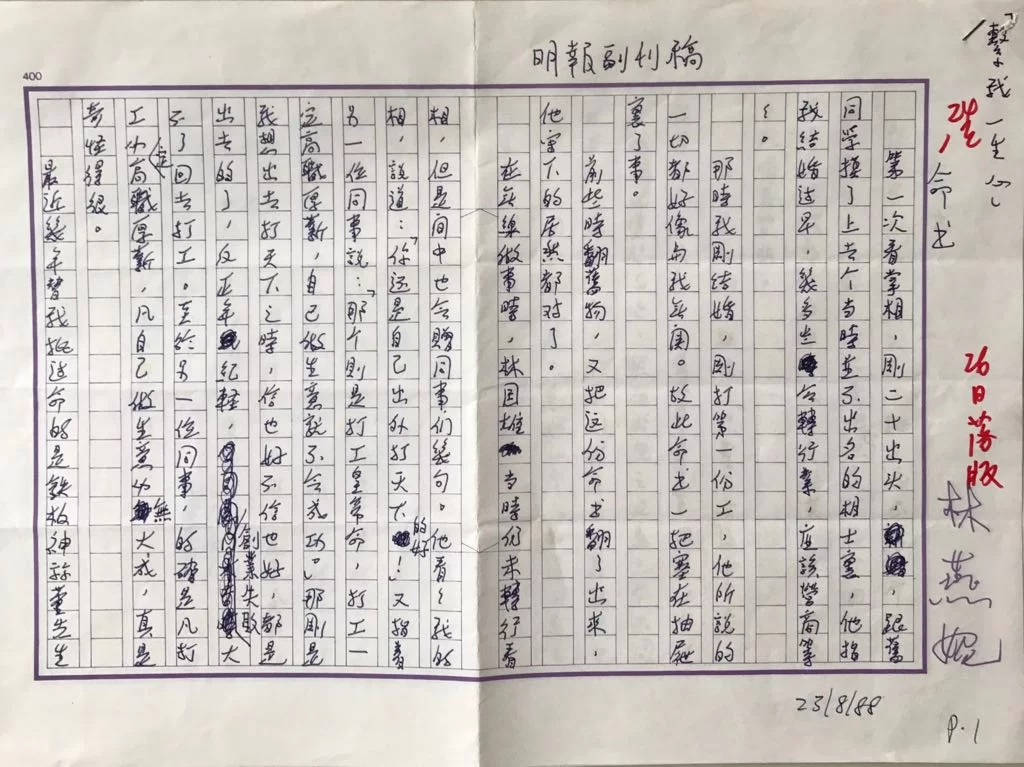 明報副刊稿
400
「繫我一生心」
命书
26日落版
林燕妮
第一次看掌相,剛二十出头,跟舊
同学摸了上去个当時並不出名的相士裏,他指
我結婚过早,幾多岁会轉行業,应該營商等
々。
那時我剛結婚,剛打第一份工,他所說的
一切都好像与我無関。故此命书一把塞在抽屉
裏了事。
前些時翻舊物,又把这份命书翻了出来,
他寫下的居然都对了。
在無線做事時,林国雄当時仍未轉行看
相,但是间中也会贈同事们幾句。他看々我的
相,說道:「你还是自己出外打天下的好!」又指着
另一位同事說:「那个則是打工皇帝命,打工一
定高職厚薪,自己做生意就不会成功」。那剛是
我想出去打天下之時,信也好不信也好,都是
出去的了,反正年紀輕,創業失敗大
不了回去打工。至於另一位同事,的確是凡打
工必定高職厚薪,凡自己做生意必無大成,真是
奇怪得很。
最近幾年替我批过命的是鉄板神算董先生
23/8/88
P.1